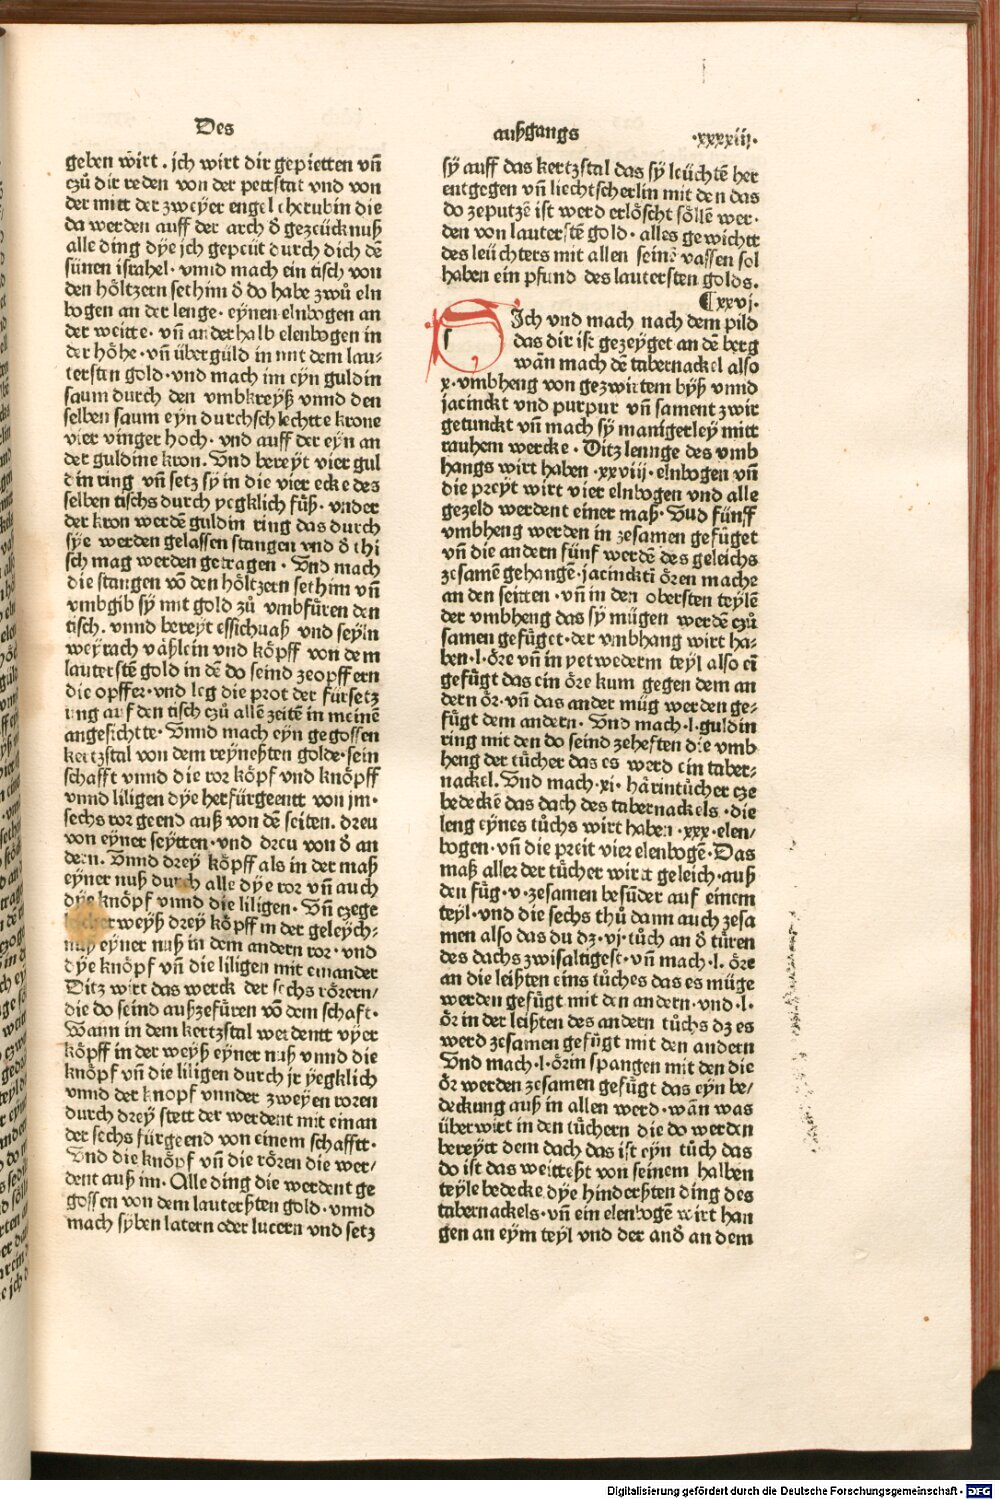 Des
geben wirt . jch wirt dir gepietten vñ
czů dir reden von der petstat vnd von
der mitt der zweyer engel cherubin die
da werden auff der arch d̕ gezeücknuß
alle ding dÿe jch gepeüt durch dich dē
sünen israhel · vnnd mach ein tisch von
den höltzern sethim d̕ do habe zwů eln
bogen an der lenge · eynen elnbogen an
der weitte · vñ anderhalb elenbogen in
der höhe · vñ übergüld in mit dem lau⸗
tersten gold · vnd mach im eyn guldin
saum durch den vmbkreyß vnnd den
selben saum eyn durchschlechtte krone
vier vinger hoch · vnd auff der eyn an
der guldine kron. Vnd bereyt vier gul
din ring vñ setz sÿ in die vier ecke des
selben tischs durch yegklich füß · vnder
der kron werdē guldin ring das durch
sÿe werden gelassen stangen vnd d̕ thi
sch mag werden getragen · Vnd mach
die stangen vō den höltzern sethim vñ
vmbgib sÿ mit gold zů vmbfüren den
tisch. vnnd bereyt essichuaß vnd seyln
weyrach väßlein vnd köpff von dem
lauterstē gold in dē do seind zeopffern
die opffer · vnd leg die prot der fürsetz
ung auf den tisch czů allē zeitē in meinē
angesichtte · Vnnd mach eyn gegossen
kertzstal von dem reyneßten golde · sein
schafft vnnd die ror köpf vnd knöpff
vnnd liligen dÿe herfürgeentt von jm ·
sechs ror geend auß von dē seiten. dreu
von eyner seytten · vnd dreu von d̕ an
dern. Vnnd dreÿ köpff als in der maß
eyner nuß durch alle dÿe ror vñ auch
dÿe knöpf vnnd die liligen · Vñ czege
weÿß dreÿ köpff in der geleÿch⸗
nuß eyner nuß in dem andern ror · vnd
dÿe knöpf vñ die liligen mit einander
Ditz wirt das werck der sechs rörern/
die do seind außzefüren vō dem schaft ·
Wann in dem kertzstal werdentt vyer
köpff in der weÿß eyner nuß vnnd die
knöpf vñ die liligen durch jr yegklich
vnnd der knopf vnnder zweyen roren
durch dreÿ stett der werdent mit einan
der sechs fürgeend von einem schafftt ·
Vnd die knöpf vñ die rören die wer/
dent auß im · Alle ding die werdent ge
gossen von dem lauterßten gold · vnnd
mach sÿben latern oder lucern vnd setz
außgangs ·xxxxiij·
sÿ auff das kertzstal das sÿ leüchtē her
entgegen vñ liechtscherlin mit den das
do zeputzē ist werd erlöscht söllē wer·
den von lauterstē gold · alles gewichtt
des leüchters mit allen seinē vassen sol
haben ein pfund des lautersten golds.
¶xxvj·
Sich vnd mach nach dem pild
das dir ist gezeyget an dē berg
wān mach dē tabernackel also
x · vmbheng von gezwirtem byß vnnd
jacinckt vnd purpur vñ sament zwir
getunckt vñ mach sÿ manigerleÿ mitt
rauhem wercke · Ditz lennge des vmb
hangs wirt haben · xxviij · elnbogen vñ
die preÿt wirt vier elnbogen vnd alle
gezeld werdent einer maß · Vnd fünff
vmbheng werden in zesamen gefüget
vñ die andern fünf werdē des geleichs
zesamē gehangē · jacincktī ören mache
an den seitten · vñ in den obersten teylē
der vmbheng das sÿ mügen werdē czů
samen gefüget · der vmbhang wirt ha⸗
ben · l · öre vñ in yetwederm teyl also eī
gefügt das ein öre kum gegen dem an
dern ör · vñ das ander müg werden ge⸗
fügt dem andern · Vnd mach · l · guldin
ring mit den do seind zeheften die vmb
heng der tücher das es werd ein taber⸗
nackel. Vnd mach · xi · härintücher cze
bedeckē das dach des tabernackels · die
leng eynes tůchs wirt haben · xxx · elen/
bogen · vñ die preit vier elenbogē · Das
maß aller der tücher wirt geleich · auß
den füg · v · zesamen besünder auf einem
teyl · vnd die sechs thů dann auch zesa
men also das du dz · vj · tůch an d̕ türen
des dachs zwifaltigest · vñ mach · l · öre
an die leißten eins tůches das es müge
werden gefügt mit den andern · vnd · l ·
ör in der leißten des andern tůchs dz es
werd zesamen gefügt mit den andern
Vnd mach · l · örin spangen mit den die
ör werden zesamen gefügt das eyn be/
deckung auß in allen werd · wān was
überwirt in den tüchern die do werden
bereytt dem dach das ist eyn tůch das
do ist das weitteßt von seinem halben
teyle bedecke dÿe hinderßten ding des
tabernackels · vñ ein elenbogē wirt han
gen an eym teyl vnd der and̕ an dem
Digitalisierung gefördert durch die Deutsche Forschungsgemeinschaft · DFG